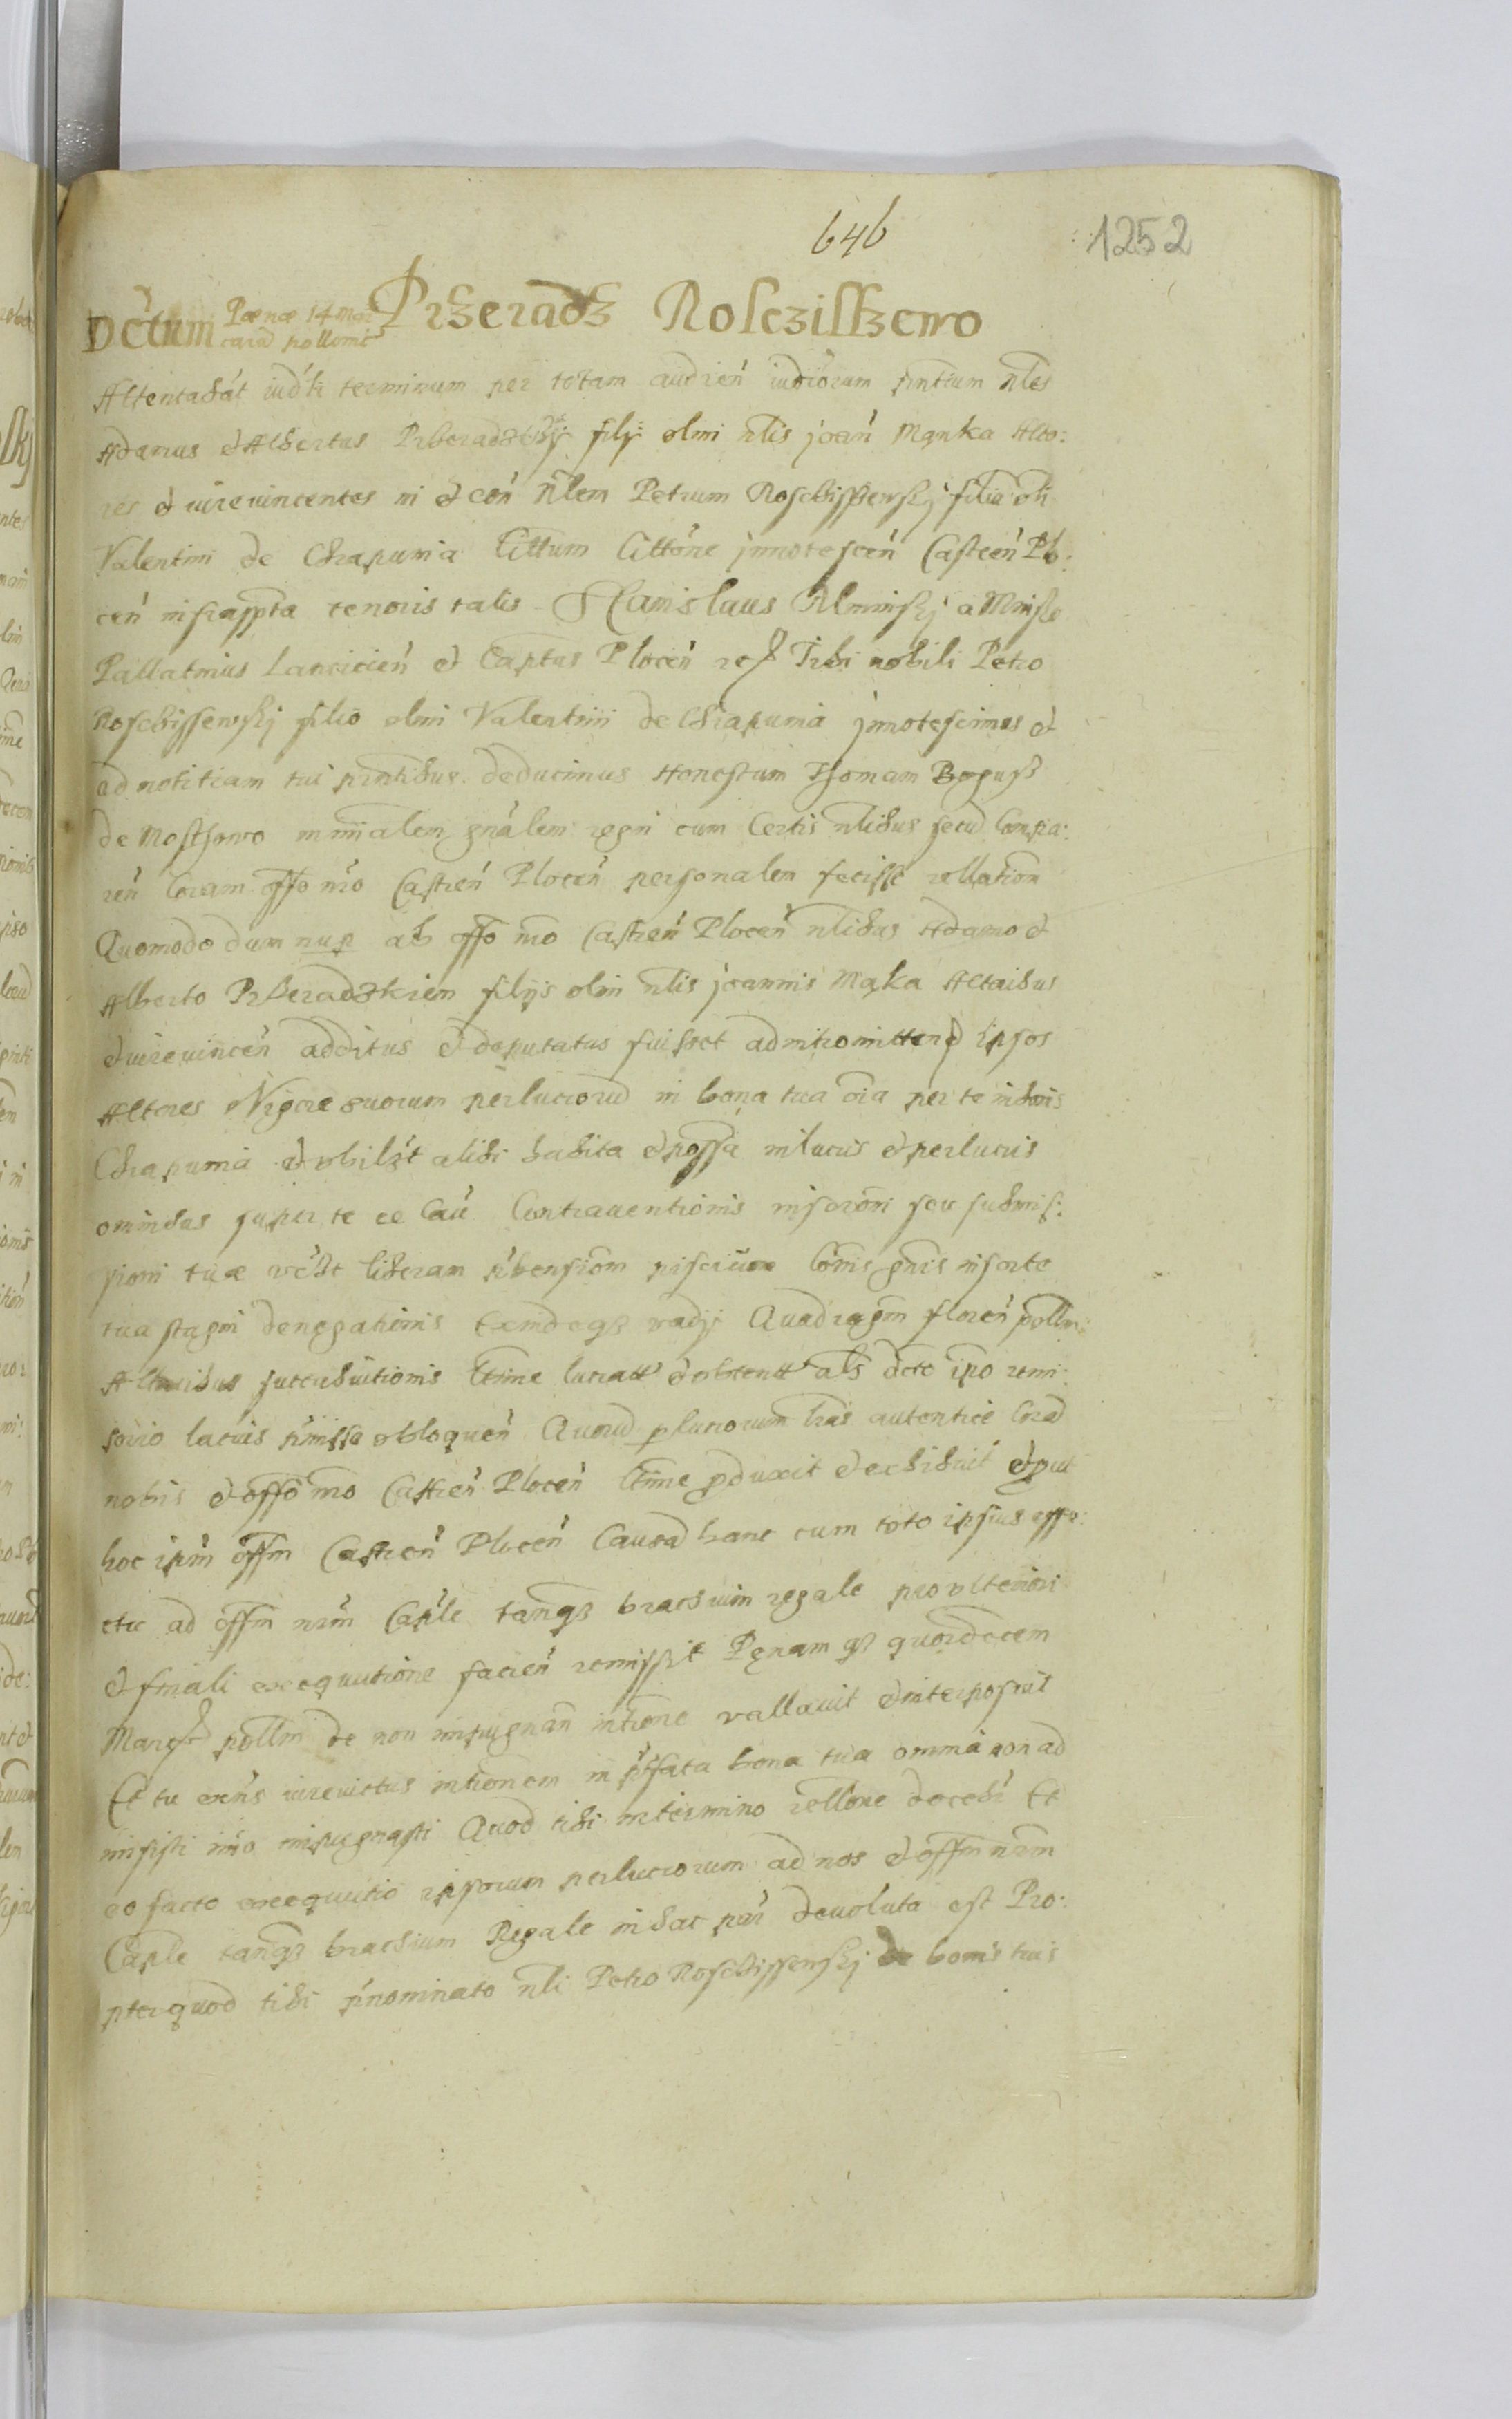 646
1252
Dctum Pænæ 14 Mar
card pollonic
Przeradz Rosczisszewo
Attentabat iudtr terminum per totam audien iudiciorum pntium nles
Adamus et Albertus Przeradzkij filij olim nlis joan Mąnka Acto:
res et iurevincentes in et con nlem Petrum Roschissewskj filiu oli
Valentini de Chapunia Cittum Cittone jnnotescen Castren Plo:
cen infrascpta tenoris talis Stanislaus Minskj a Minsko
Pallatinus Lancicien et Captus Plocen Tibi nobili Petro
Roschissewskj filio olim Valentini de Chiapunia jnnotescimus et
ad notitiam tui pntibus deducimus Honestum Thomam Bogusz
de Mosthowo mnialem gnalem regni cum Certis nlibus secu Compa:
ren Coram offo nro Castren Plocen personalem fecisse rellation
Quomodo dum nup ab offo nro Castren Plocen nlibus Adamo et
Alberto Przeradzkiem filijs olim nlis joannis Mąka Actoribus
et iurevincen additus et deputatus fuisset ad intromitten ipsos
Actores Vigore suorum perlucrorum in bona tua oia per te in
Chapunia et ubilzt alibi habita et possa in lucris et perlucris
omnibus super te ce Cau Contraventionis inscrom seu submis:
sioni tuæ liberam Comis gnis in sorte
tua stagni denegationis Eiusdeqz vadij Quadragin floren pollon
Actoribus succubuitionis ltime lucratt et obtentt als dcto ipo remi:
sorio lacius pmissa obloquen Quoru plucrorum lras autentice Cora
nobis et offo nro Castren Plocen ltime pduxit et exhibuit et put
hoc ipm offm Castren Plocen Causa hanc cum toto ipsius effe:
ctu ad offm nrm Caple tanqz brachium regale pro ulteriori
et finali exequutione facien remissit Penam qz quordecem
Marc pollon de non impugnan intione vallavit et interposuit
Et tu exns iurevictus intionem in pfata bona tua omnia non ad
misisti imo impugnasti Quod tibi in termino rellone docebr Et
eo facto exequutio ipsorum perlucrorum ad nos et offm nrm
Caple tanqz brachium Regale in hac par devoluta est Pro:
pterquod tibi pnominato nli Petro Roschissenskj de bonis tuis